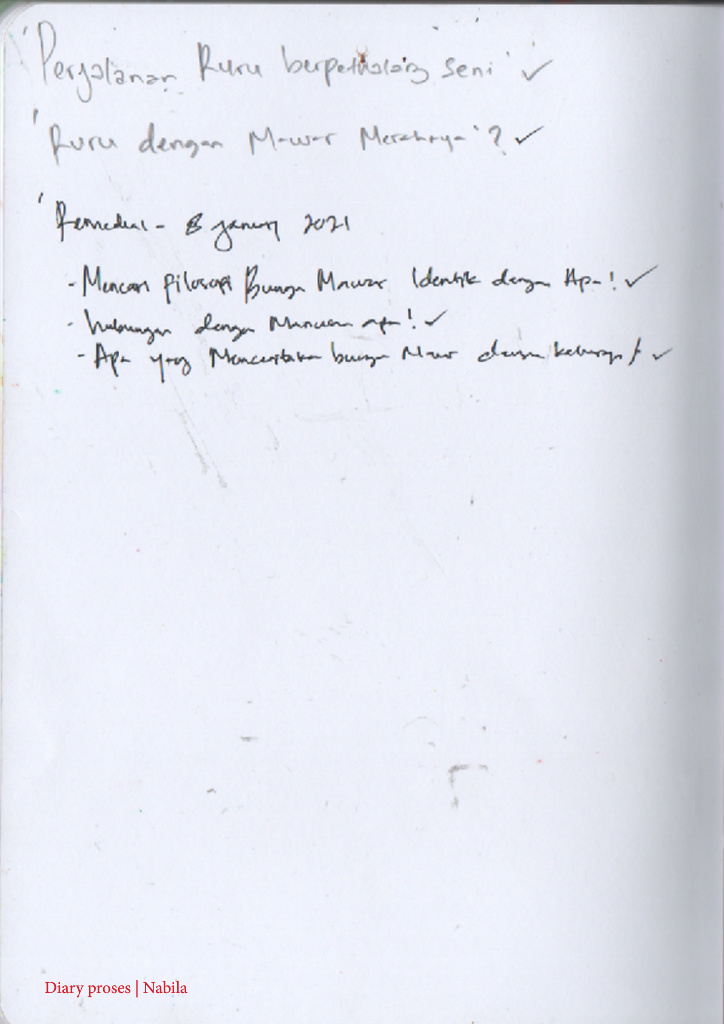 'Perjalanan Ruru berpetualang seni' ✓
'Ruru dengan Mawar Merahnya'? ✓
'Remedial - 8 January 2021
- Mencari filosofi Bunga Mawar Identik dengan Apa! ✓
- hubungan dengan Manusia apa! ✓
- Apa yang Menceritakan bunga Mawar dalam ! ✓
Diary proses | Nabila